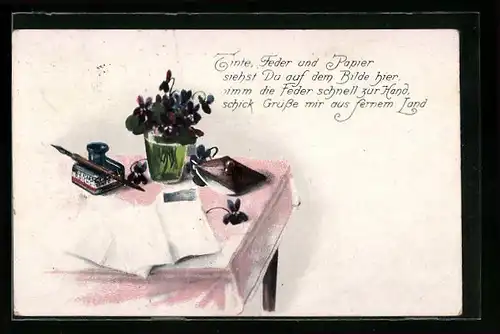 Tinte, Feder und Papier
siehst Du auf dem Bilde hier,
nimm die Feder schnell zur Hand,
schick Grüße mir aus fernem Land